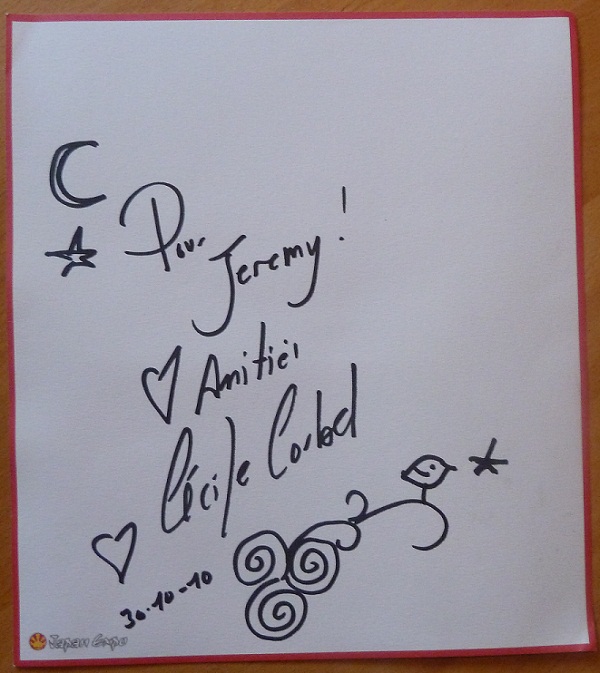 Pour
Jeremy!
Amitiés
Cécile Corbel
30-10-10
Japan Expo